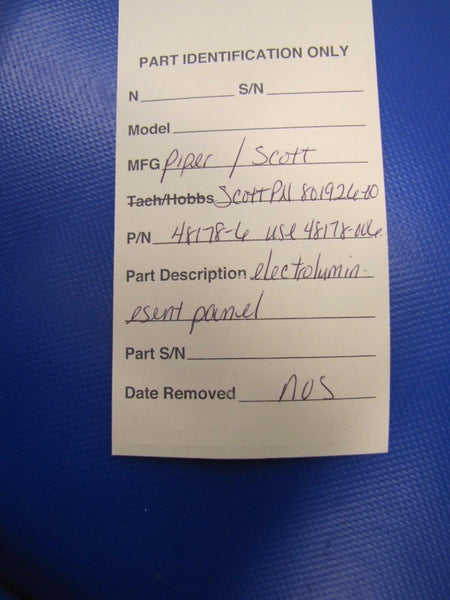 PART IDENTIFICATION ONLY
N S/N
Model
MFG Piper / Scott
Tach/Hobbs Scott P/N 801926-00
P/N 48178-6 use 48178-006
Part Description electrolumin-
esent panel
Part S/N
Date Removed NOS